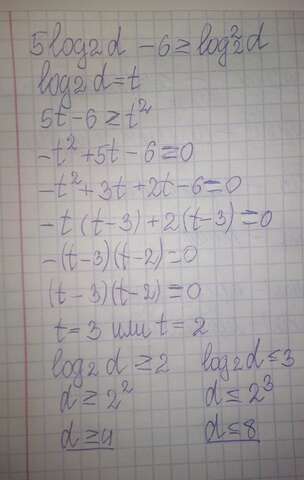 5log₂d - 6 ≥ log₂²d
log₂d = t
5t - 6 ≥ t²
-t² + 5t - 6 = 0
-t² + 3t + 2t - 6 = 0
-t (t - 3) + 2(t - 3) = 0
-(t - 3)(t - 2) = 0
(t - 3)(t - 2) = 0
t = 3 или t = 2
log₂d ≥ 2 log₂d ≤ 3
d ≥ 2² d ≤ 2³
d ≥ 4 d ≤ 8